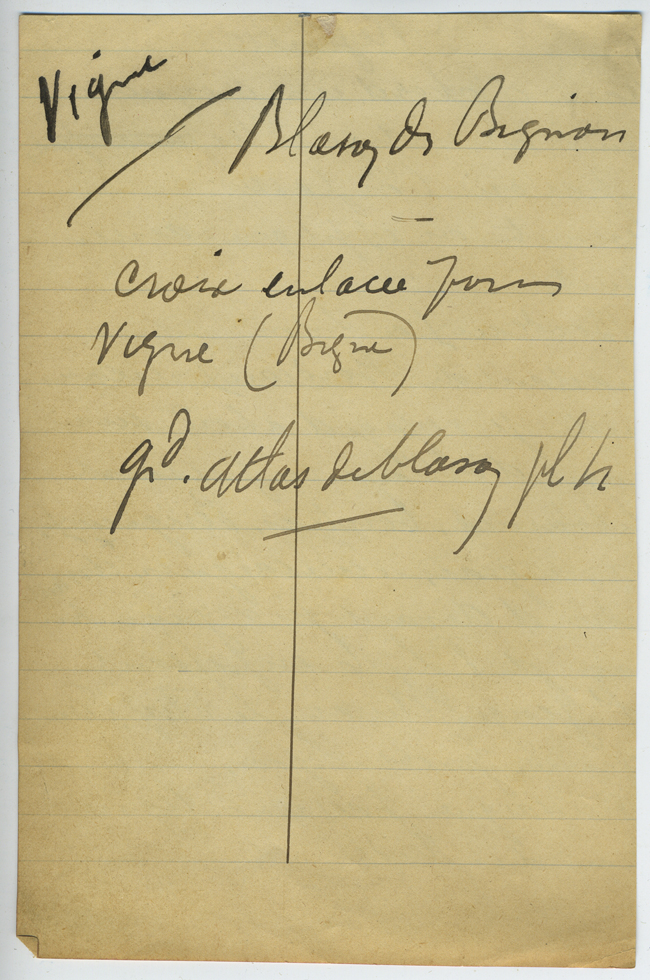 Vigne
Blason de Bignon
croix enlacée
Vigne (Bigne)
gd. atlas de blason pl